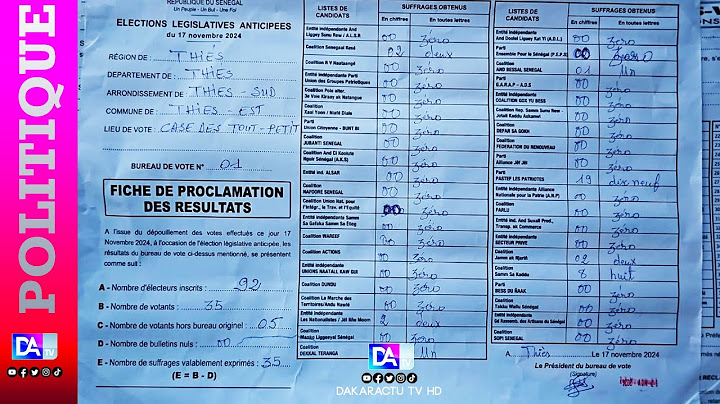 POLITIQUE
DA TV
RÉPUBLIQUE DU SÉNÉGAL
Un Peuple - Un But - Une Foi
ELECTIONS LEGISLATIVES ANTICIPÉES
du 17 novembre 2024
RÉGION DE : THIÉS
DÉPARTEMENT DE : THIÉS
ARRONDISSEMENT DE : THIÉS - SUD
COMMUNE DE : THIÉS - EST
LIEU DE VOTE : CASE DES TOUT-PETIT
BUREAU DE VOTE N° 01
FICHE DE PROCLAMATION
DES RESULTATS
A l'issue du dépouillement des votes effectués ce jour 17
Novembre 2024, à l'occasion de l'élection législative anticipée, les
résultats du bureau de vote ci-dessus mentionné, se présentent
comme suit :
A - Nombre d'électeurs inscrits : 92
B - Nombre de votants : 35
C - Nombre de votants hors bureau originel : 05
D - Nombre de bulletins nuls : 00
E - Nombre de suffrages valablement exprimés : 35
(E = B - D)
LISTES DE CANDIDATS
SUFFRAGES OBTENUS
En chiffre
En toutes lettres
Entité Indépendante And
Liggey Sunu Rew / A.L.S.R 00 zéro
Coalition Senegaal Kese 02 deux
Coalition R V Naataangé 00 zéro
Entité indépendante Parti
Union des Groupes Patriotiques 00 zéro
Coalition Pole alter.
3e Voie Kiraay ak Natangue 00 zéro
Coalition
Xaal Yoon / Nafé Diale 00 zéro
Parti
Union Citoyenne - BUNT BI 00 zéro
Coalition
JUBANTI SENEGAL 00 zéro
Coalition And Ci Koolute
Nguir Sénégal (A.K.S) 00 zéro
Entité ind. ALSAR 00 zéro
Coalition
NAFOORE SENEGAL 00 zéro
Coalition Union Nat. pour
l'Intégr., le Trav. et l'Equité 00 zéro
Entité indépendante Samm
Sa Gafaka Samm Sa Eleg 00 zéro
Coalition WAREEF 00 zéro
Coalition ACTIONS 00 zéro
Entité Indépendante
UNIONS NAATALL KAW GUI 00 zéro
Coalition DUNDU 00 zéro
Coalition La Marche des
Territoires/Andu Nawlé 00 zéro
Entité Indépendante
Les Nationalistes / Jël liñu Moom 2 deux
Coalition
Manko Liggeeyal Sénégal 00 zéro
Coalition
DEKKAL TERANGA Un
LISTES DE CANDIDATS
SUFFRAGES OBTENUS
En chiffre
En toutes lettres
Entité indépendante
And Doolel Liguey Kat Yi (A.D.L) 00 zéro
Parti
Ensemble Pour le Sénégal (P.E.P.S) 00 zéro
Coalition
AND BESSAL SENEGAL 01 Un
G.A.R.A.P - A.D.S 00 zéro
Entité indépendante
COALITION GOX YU BESS 00 zéro
Coalition Rep. Samm Sunu New -
Jotali Kaddu Askanwi 00 zéro
Coalition
DEFAR SA GOKH 00 zéro
Coalition
FEDERATION DU RENOUVEAU 00 zéro
Parti
Alliance Jëf Jël 00 zéro
Parti
PASTEF LES PATRIOTES 19 dix neuf
Entité indépendante Alliance
Nationale pour la Patrie (A.N.P) 00 zéro
Coalition
FARLU 00 zéro
Entité ind. And Suxali Prod.,
Transp. ak Commerce 00 zéro
Entité indépendante
SECTEUR PRIVÉ 00 zéro
Coalition
Jamm ak Njariñ 02 deux
Coalition
Samm Sa Kaddu 8 huit
Parti
BESS DU ÑAKK 00 zéro
Coalition
Takku Wallu Sénégal 00 zéro
Entité indépendante
Gd Rassemb. des Artisans du Sénégal 00 zéro
Coalition
SOPI SENEGAL 00 zéro
A Thiès Le 17 novembre 2024
Le Président du bureau de vote
(Signature)
DA TV
DAKARACTU TV HD